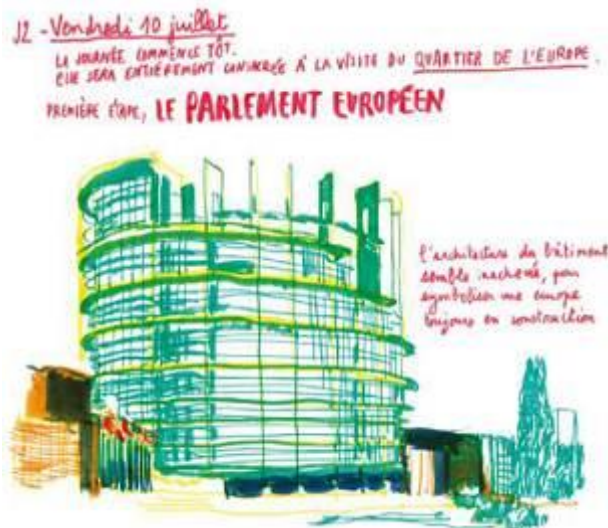 J2 - Vendredi 10 juillet
LA JOURNÉE COMMENCE TÔT.
ELLE SERA ENTIÈREMENT CONSACRÉE À LA VISITE DU QUARTIER DE L'EUROPE.
PREMIÈRE ÉTAPE, LE PARLEMENT EUROPÉEN
l'architecture du bâtiment
semble inachevé, pour
symboliser une europe
toujours en construction